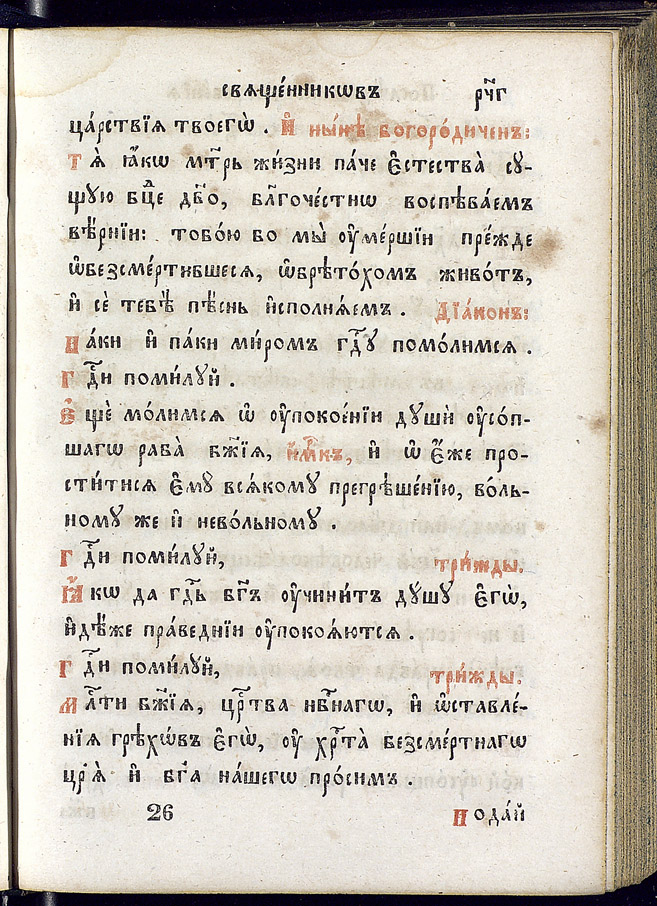 свѧще́нникѡвъ рч҃г
ца́рствїѧ твоегѡ̀ . И҆ ны́нѣ богоро́диченъ:
Тѧ̀ ꙗ҆́кѡ мт҃рь жи́зни па́че є҆стества̀ сꙋ́-
щꙋю бцⷣе дв҃о, бл҃гоче́стнѡ воспѣва́емъ
вѣ́рнїи: тобо́ю бо мы̀ ᲂу҆ме́ршїи пре́жде
ѡ҆безсме́ртившесѧ, ѡ҆брѣто́хомъ живо́тъ,
и҆ сѐ тебѣ̀ пѣ́снь и҆сполнѧ́емъ . Дїа́конъ:
Па́ки и҆ па́ки ми́ромъ гдⷭ҇ꙋ помо́лимсѧ .
Гдⷭ҇и поми́лꙋй .
Е҆щѐ мо́лимсѧ ѡ҆ ᲂу҆покое́нїи дꙋшѝ ᲂу҆со́п-
шагѡ раба̀ бж҃їѧ, и҆́мⷬ҇къ, и҆ ѡ҆ є҆́же про-
сти́тисѧ є҆мꙋ̀ всѧ́комꙋ прегрѣше́нїю, во́ль-
номꙋ же и҆ нево́льномꙋ .
Гдⷭ҇и поми́лꙋй, три́жды.
Ꙗ҆́кѡ да гдⷭ҇ь бг҃ъ ᲂу҆чини́тъ дꙋ́шꙋ є҆гѡ̀,
и҆дѣ́же пра́веднїи ᲂу҆покоѧ́ютсѧ .
Гдⷭ҇и поми́лꙋй, три́жды.
Млⷭ҇ти бж҃їѧ, црⷭ҇тва нбⷭ҇нагѡ, и҆ ѡ҆ставле́-
нїѧ грѣхѡ́въ є҆гѡ̀, ᲂу҆ хрⷭ҇та̀ безсме́ртнагѡ
цр҃ѧ̀ и҆ бг҃а на́шегѡ про́симъ .
26 Пода́й